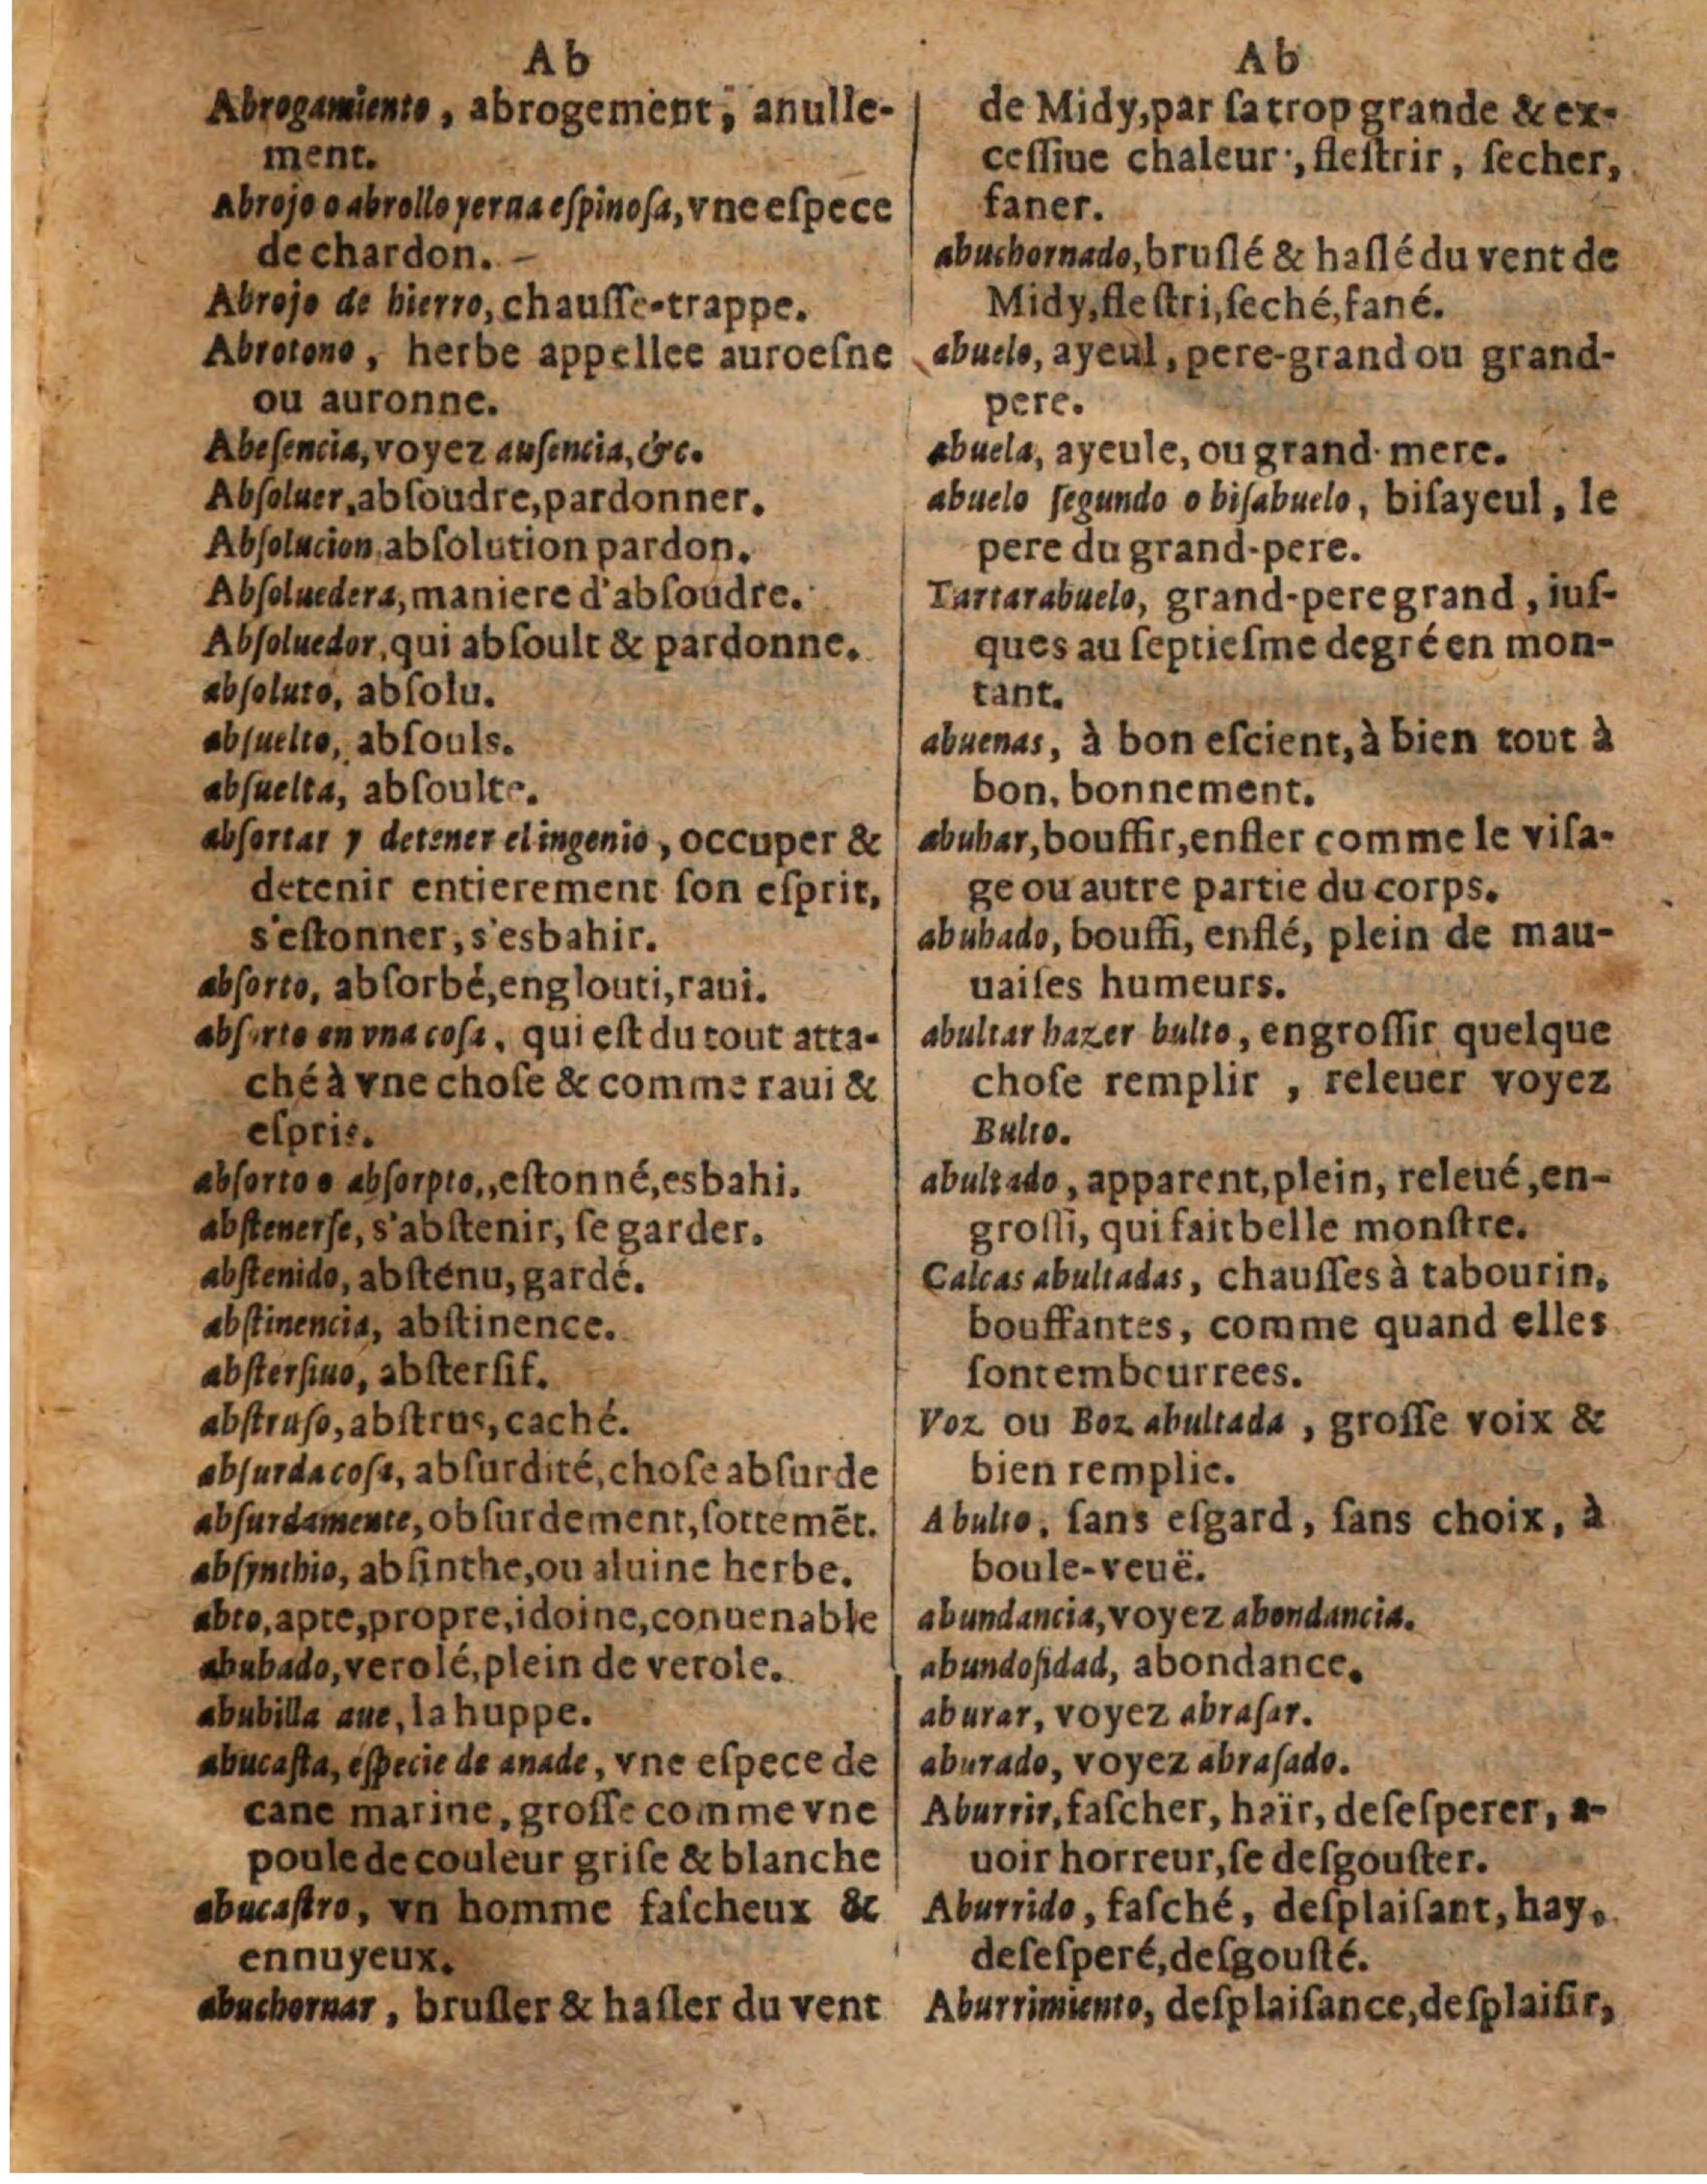 Ab
Abrogamiento, abrogement, anulle-
ment.
Abrojo o abrollo yerua eſpinoſa, vne eſpece
de chardon.
Abrojo de hierro, chauſſe-trappe.
Abrotono, herbe appellee auroeſne
ou auronne.
Abeſencia, voyez auſencia, &c.
Abſoluer, abſoudre, pardonner.
Abſolucion, abſolution pardon.
Abſoluedera, maniere d'abſoudre.
Abſoluedor, qui abſoult & pardonne.
abſoluto, abſolu.
abſuelto, abſouls.
abſuelta, abſoulte.
abſortar y detener el ingenio, occuper &
detenir entierement ſon eſprit,
s'eſtonner, s'esbahir.
abſorto, abſorbé, englouti, raui.
abſorto en vna coſa, qui eſt du tout atta-
ché à vne choſe & comme raui &
eſpris.
abſorto o abſorpto,, eſtonné, esbahi.
abſtenerſe, s'abſtenir, ſe garder.
abſtenido, abſtenu, gardé.
abſtinencia, abſtinence.
abſterſiuo, abſterſif.
abſtruſo, abſtrus, caché.
abſurda coſa, abſurdité, choſe abſurde
abſurdamente, obſurdement, ſottemẽt.
abſynthio, abſinthe, ou aluine herbe.
abto, apte, propre, idoine, conuenable
abubado, verolé, plein de verole.
abubilla aue, la huppe.
abucaſta, eſpecie de anade, vne eſpece de
cane marine, groſſe comme vne
poule de couleur griſe & blanche
abucaſtro, vn homme faſcheux &
ennuyeux.
abuchornar, bruſler & haſler du vent
Ab
de Midy, par ſa trop grande & ex-
ceſſiue chaleur, fleſtrir, ſecher,
faner.
abuchornado, bruſlé & haſlé du vent de
Midy, fleſtri, ſeché, fané.
abuelo, ayeul, pere-grand ou grand-
pere.
abuela, ayeule, ou grand-mere.
abuelo ſegundo o biſabuelo, biſayeul, le
pere du grand-pere.
Tartarabuelo, grand-pere grand, iuſ-
ques au ſeptieſme degré en mon-
tant.
abuenas, à bon eſcient, à bien tout à
bon, bonnement.
abuhar, bouffir, enfler comme le viſa-
ge ou autre partie du corps.
abuhado, bouffi, enflé, plein de mau-
uaiſes humeurs.
abultar hazer bulto, engroſſir quelque
choſe remplir, releuer voyez
Bulto.
abultado, apparent, plein, releué, en-
groſſi, qui fait belle monſtre.
Calcas abultadas, chauſſes à tabourin,
bouffantes, comme quand elles
ſont embourrees.
Voz ou Boz abultada, groſſe voix &
bien remplie.
A bulto, ſans eſgard, ſans choix, à
boule-veuë.
abundancia, voyez abondancia.
abundoſidad, abondance.
aburar, voyez abraſar.
aburado, voyez abraſado.
Aburrir, faſcher, haïr, deſeſperer, a-
uoir horreur, ſe deſgouſter.
Aburrido, faſché, deſplaiſant, hay,
deſeſperé, deſgouſté.
Aburrimiento, deſplaiſance, deſplaiſir,